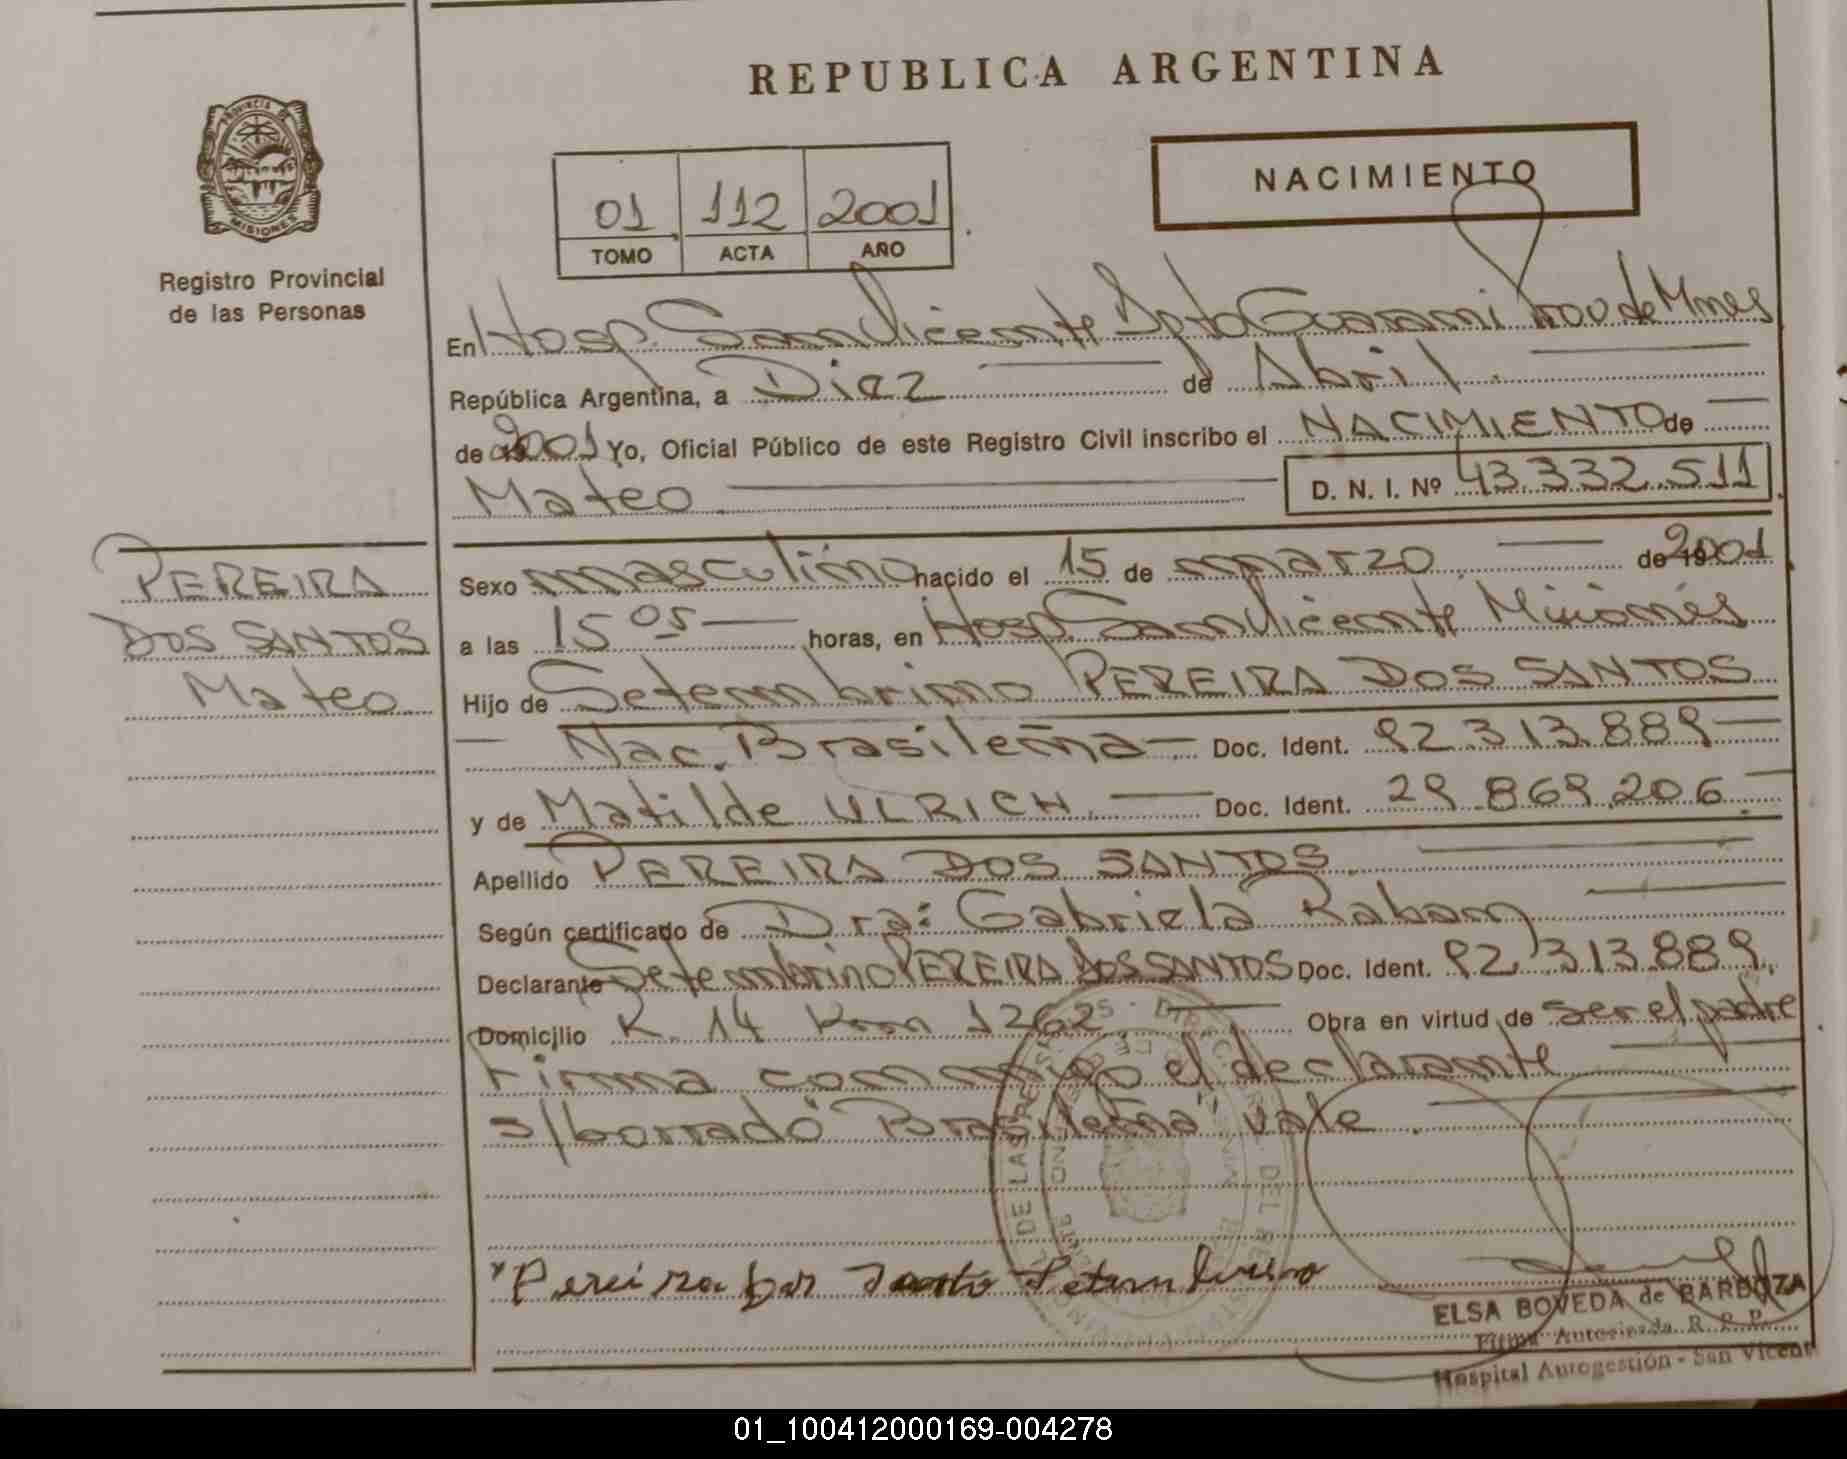 REPUBLICA ARGENTINA
PROVINCIA DE
MISIONES
Registro Provincial
de las Personas
01 112 2001
TOMO ACTA AÑO
NACIMIENTO
En Hosp. San Vicente Dpto Guarani Prov de Mnes
República Argentina, a Diez de Abril
de 2001 Yo, Oficial Público de este Registro Civil inscribo el NACIMIENTO de
Mateo D. N. I. Nº 43.332.511
PEREIRA
DOS SANTOS
Mateo
Sexo masculino nacido el 15 de marzo de 19 2001
a las 15 05 horas, en Hosp. San Vicente Misiones
Hijo de Setembrino PEREIRA DOS SANTOS
Nac. Brasileña Doc. Ident. 92.313.889
y de Matilde ULRICH. Doc. Ident. 29.869.206
Apellido PEREIRA DOS SANTOS.
Según certificado de Dra: Gabriela
Declarante Setembrino PEREIRA DOS SANTOS Doc. Ident. 92.313.889.
Domicilio R. 14 Km 1262 Obra en virtud de ser el padre
Firma conmigo el declarante
s/borrado "Brasileña" vale.
Pereira Setembrino
ELSA BOVEDA de BARBOZA
Firma Autorizada R. P. P.
Hospital Autogestión - San Vicente
01_100412000169-004278